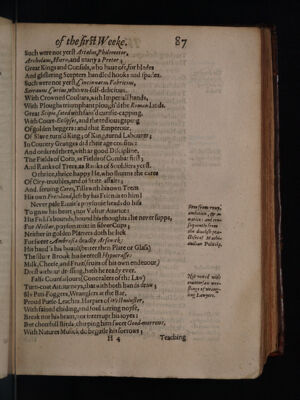 of the first Weeke. 87
Such were not yerst Attalus, Philometor,
Archelaus, Hiero, and many a Pretor;
Great Kings and Consuls, who have oft, for blades
And glistering Scepters handled hooks and spades.
Such were not yerst, Cincinnatus, Fabricius,
Serranus, Curius, who un-self-delicious,
With Crowned Coultars, with Imperiall hands,
With Ploughs triumphant plough'd the Roman lands.
Great Scipio, sated with fain'd curtsie-capping,
With Court-Eclipses, and the tedious gaping
Of golden beggers: and that Emperour,
Of Slave turn'd King; of King, turnd Labourer;
In Country Granges did their age confine:
And ordered there, with as good Discipline,
The Fields of Corn, as Fields of Combat first;
And Ranks of Trees, as Ranks of Souldiers yerst.
O thrice, thrice happy He, who shunns the cares
Of City-troubles, and of State-affairs;
And, serving Ceres, Tills with his own Teem
His own Free-land, left by his Friends to him!
Never pale Envie's poysonie heads do hiss
To gnaw his heart; nor Vultur Avarice:
His Fields bounds, bound his thoughts: he never supps,
For Nectar, poyson mixt in silver Cups;
Neither in golden Platters doth he lick
For sweet Ambrosia deadly Arsenick:
His hand's his boaul (better then Plate or Glass)
The silver Brook his sweetest Hypocrasse:
Milk, Cheese, and Fruit, (fruits of his own endeavour)
Drest without dressing, hath he ready ever.
False Counsailours (Concealers of the Law)
Turn-coat Atturneys, that with both hands draw;
Sly Peti-Foggers, Wranglers at the Bar,
Proud Purse-Leaches, Harpies of Westminster,
With fained chiding, and foul jarring noyse,
Break not his brain, nor interrupt his joyes:
But cheerfull Birds, chirping him sweet Good-morrows,
With Natures Musick do beguile his sorrows;
H 4 Teaching
Not vexed with